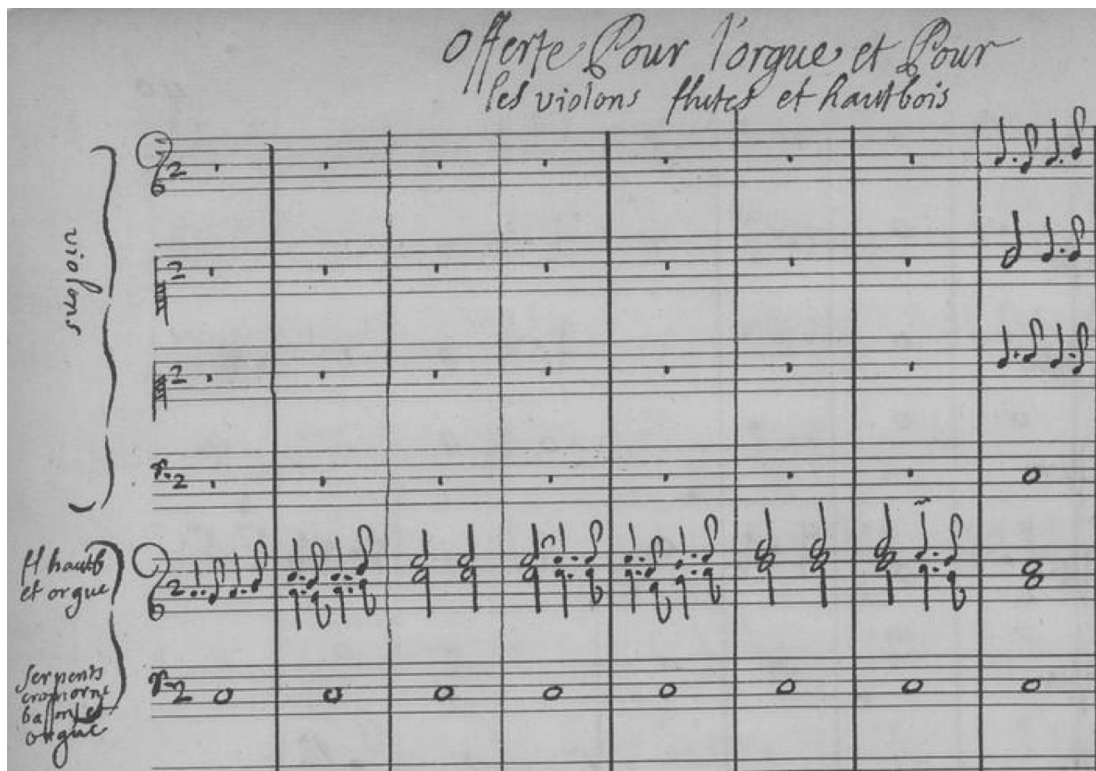 Offerte Pour l'orgue et Pour
les violons flutes et hautbois
violons
fl hautb
et orgue
serpents
cromorne
bassons et
orgue